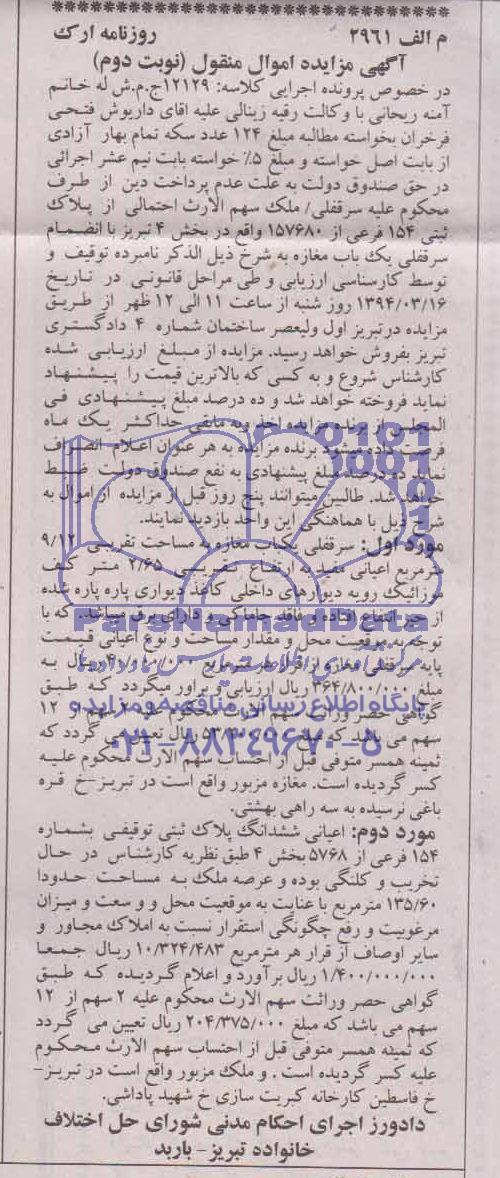 م الف ۲۹۶۱ روزنامه ارک
آگهی مزایده اموال منقول (نوبت دوم)
در خصوص پرونده اجرایی کلاسه: ۱۲۱۲۹ج.م.ش له خانم
آمنه ریحانی با وکالت رقیه زینالی علیه اقای داریوش فتحی
فرخران بخواسته مطالبه مبلغ ۱۲۴ عدد سکه تمام بهار آزادی
از بابت اصل خواسته و مبلغ ۵٪ خواسته بابت نیم عشر اجرائی
در حق صندوق دولت به علت عدم پرداخت دین از طرف
محکوم علیه سرقفلی/ ملک سهم الارث احتمالی از پلاک
ثبتی ۱۵۴ فرعی از ۱۵۷۶۸۰ واقع در بخش ۴ تبریز با انضمام
سرقفلی یک باب مغازه به شرح ذیل الذکر نامبرده توقیف و
توسط کارشناسی ارزیابی و طی مراحل قانونی در تاریخ
۱۳۹۴/۰۳/۱۶ روز شنبه از ساعت ۱۱ الی ۱۲ ظهر از طریق
مزایده در تبریز اول ولیعصر ساختمان شماره ۴ دادگستری
تبریز بفروش خواهد رسید. مزایده از مبلغ ارزیابی شده
کارشناس شروع و به کسی که بالاترین قیمت را پیشنهاد
نماید فروخته خواهد شد و ده درصد مبلغ پیشنهادی فی
المجلس از برنده مزایده اخذ و به مابقی حداکثر یک ماه
فرصت داده میشود برنده مزایده به هر عنوان اعلام انصراف
نماید ده درصد مبلغ پیشنهادی به نفع صندوق دولت ضبط
خواهد شد. طالبین میتوانند پنج روز قبل از مزایده از اموال به
شرح ذیل با هماهنگی این واحد بازدید نمایند.
مورد اول: سرقفلی یکباب مغازه به مساحت تقریبی ۹/۱۲
مترمربع اعیانی مفید به ارتفاع تقریبی ۲/۶۵ متر کف
موزائیک رویه دیوارهای داخلی کاغذ دیواری پاره پاره شده
از حیز انتفاع افتاده و فاقد و دارای برق میباشد. که با
توجه به موقعیت محل و مقدار مساحت و نوع اعیانی قسمت
پایه سرقفلی مغازه از قرار هر مترمربع ریال به
مبلغ ۳۶۴/۸۰۰/۰۰۰ ریال ارزیابی و براور میگردد که طبق
گواهی حصر وراثت سهم الارث محکوم علیه ۲ سهم از ۱۲
سهم می باشد که مبلغ ریال تعیین می گردد که
ثمینه همسر متوفی قبل از احتساب سهم الارث محکوم علیه
کسر گردیده است. مغازه مزبور واقع است در تبریز-خ قره
باغی نرسیده به سه راهی بهشتی.
مورد دوم: اعیانی ششدانگ پلاک ثبتی توقیفی بشماره
۱۵۴ فرعی از ۵۷۶۸ بخش ۴ طبق نظریه کارشناس در حال
تخریب و کلنگی بوده و عرصه ملک به مساحت حدودا
۱۳۵/۶۰ مترمربع با عنایت به موقعیت محل و و سعت و میزان
مرغوبیت و رفع چگونگی استقرار نسبت به املاک مجاور و
سایر اوصاف از قرار هر مترمربع ۱۰/۳۲۴/۴۸۳ ریال جمعا
۱/۴۰۰/۰۰۰/۰۰۰ ریال برآورد و اعلام گردیده که طبق
گواهی حصر وراثت سهم الارث محکوم علیه ۲ سهم از ۱۲
سهم می باشد که مبلغ ۲۰۴/۳۷۵/۰۰۰ ریال تعیین می گردد
که ثمینه همسر متوفی قبل از احتساب سهم الارث محکوم
علیه کسر گردیده است . و ملک مزبور واقع است در تبریز-
خ فاسطین کارخانه کبریت سازی خ شهید پاداشی.
دادورز اجرای احکام مدنی شورای حل اختلاف
خانواده تبریز- باربد
ParsNamadData
پایگاه اطلاع رسانی مناقصه و مزایده
۰۲۱-۸۸۳۴۹۶۷۰-۵